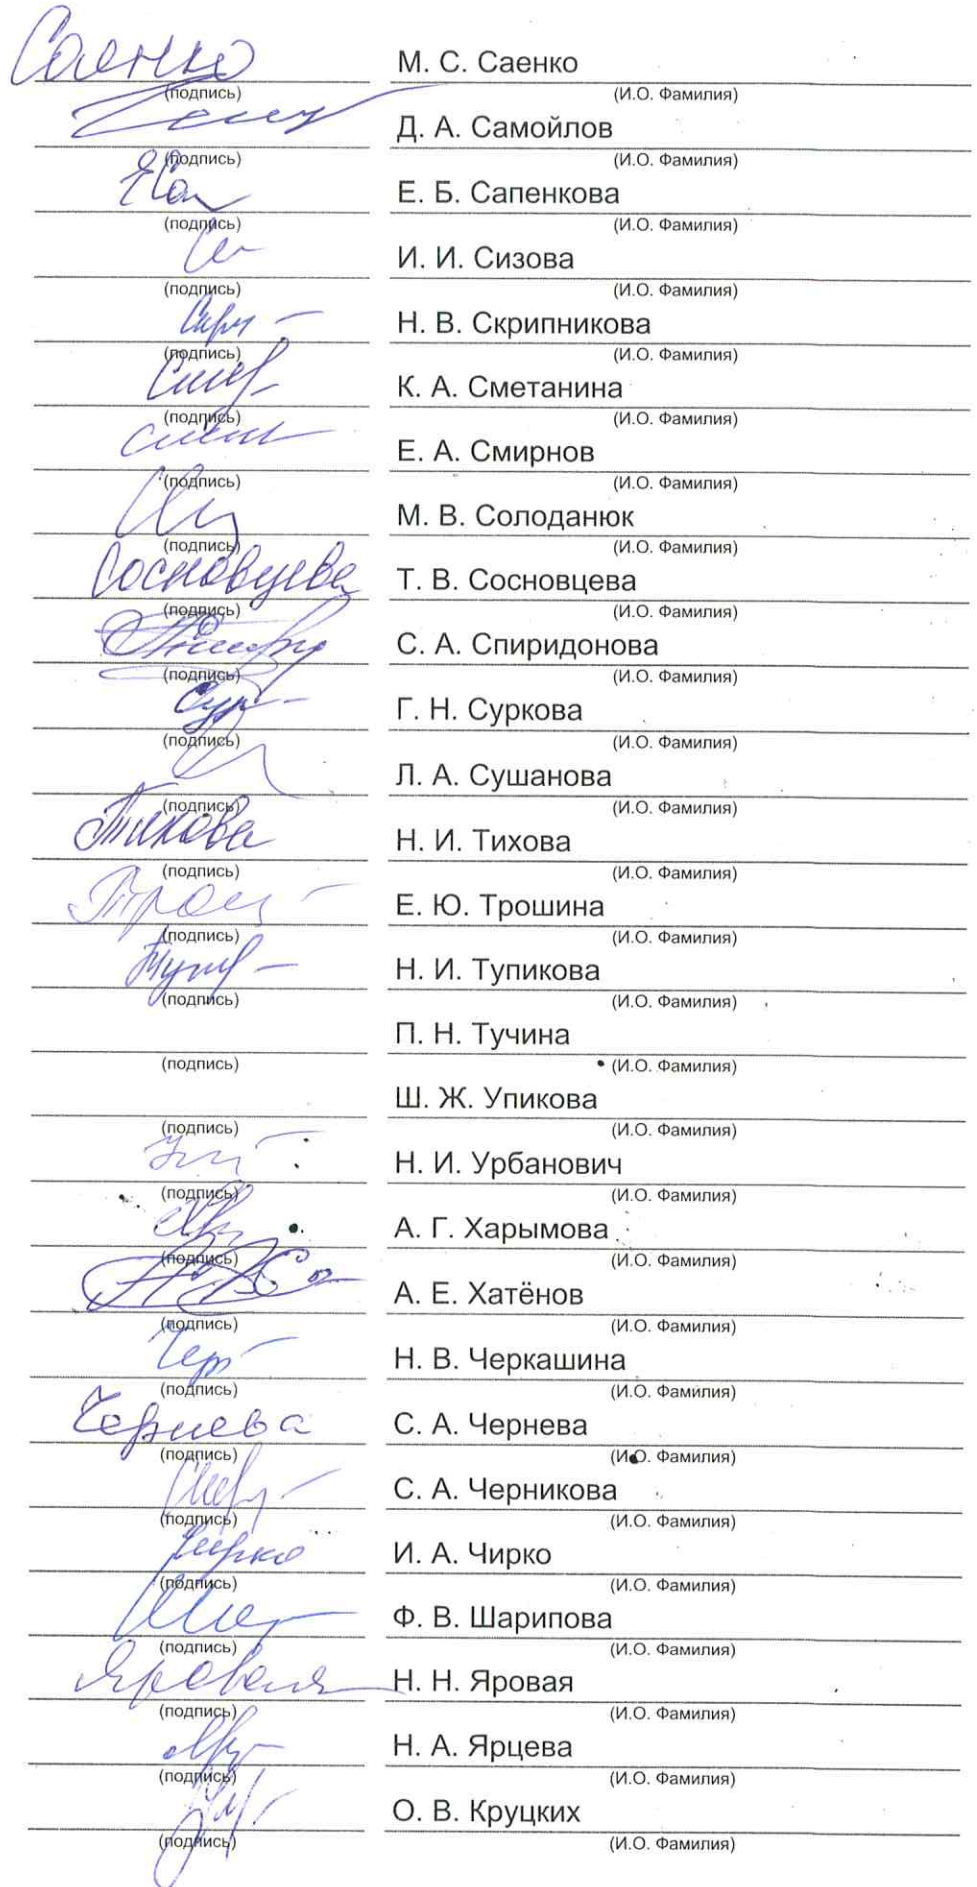 Саенко М. С. Саенко
(подпись) (И.О. Фамилия)
Д. А. Самойлов
(подпись) (И.О. Фамилия)
Е. Б. Сапенкова
(подпись) (И.О. Фамилия)
И. И. Сизова
(подпись) (И.О. Фамилия)
Н. В. Скрипникова
(подпись) (И.О. Фамилия)
К. А. Сметанина
(подпись) (И.О. Фамилия)
Е. А. Смирнов
(подпись) (И.О. Фамилия)
М. В. Солоданюк
(подпись) (И.О. Фамилия)
Сосновцева Т. В. Сосновцева
(подпись) (И.О. Фамилия)
С. А. Спиридонова
(подпись) (И.О. Фамилия)
Г. Н. Суркова
(подпись) (И.О. Фамилия)
Л. А. Сушанова
(подпись) (И.О. Фамилия)
Тихова Н. И. Тихова
(подпись) (И.О. Фамилия)
Е. Ю. Трошина
(подпись) (И.О. Фамилия)
Н. И. Тупикова
(подпись) (И.О. Фамилия)
П. Н. Тучина
(подпись) (И.О. Фамилия)
Ш. Ж. Упикова
(подпись) (И.О. Фамилия)
Н. И. Урбанович
(подпись) (И.О. Фамилия)
А. Г. Харымова
(подпись) (И.О. Фамилия)
А. Е. Хатёнов
(подпись) (И.О. Фамилия)
Н. В. Черкашина
(подпись) (И.О. Фамилия)
Чернева С. А. Чернева
(подпись) (И.О. Фамилия)
С. А. Черникова
(подпись) (И.О. Фамилия)
Чирко И. А. Чирко
(подпись) (И.О. Фамилия)
Ф. В. Шарипова
(подпись) (И.О. Фамилия)
Яровая Н. Н. Яровая
(подпись) (И.О. Фамилия)
Н. А. Ярцева
(подпись) (И.О. Фамилия)
О. В. Круцких
(подпись) (И.О. Фамилия)